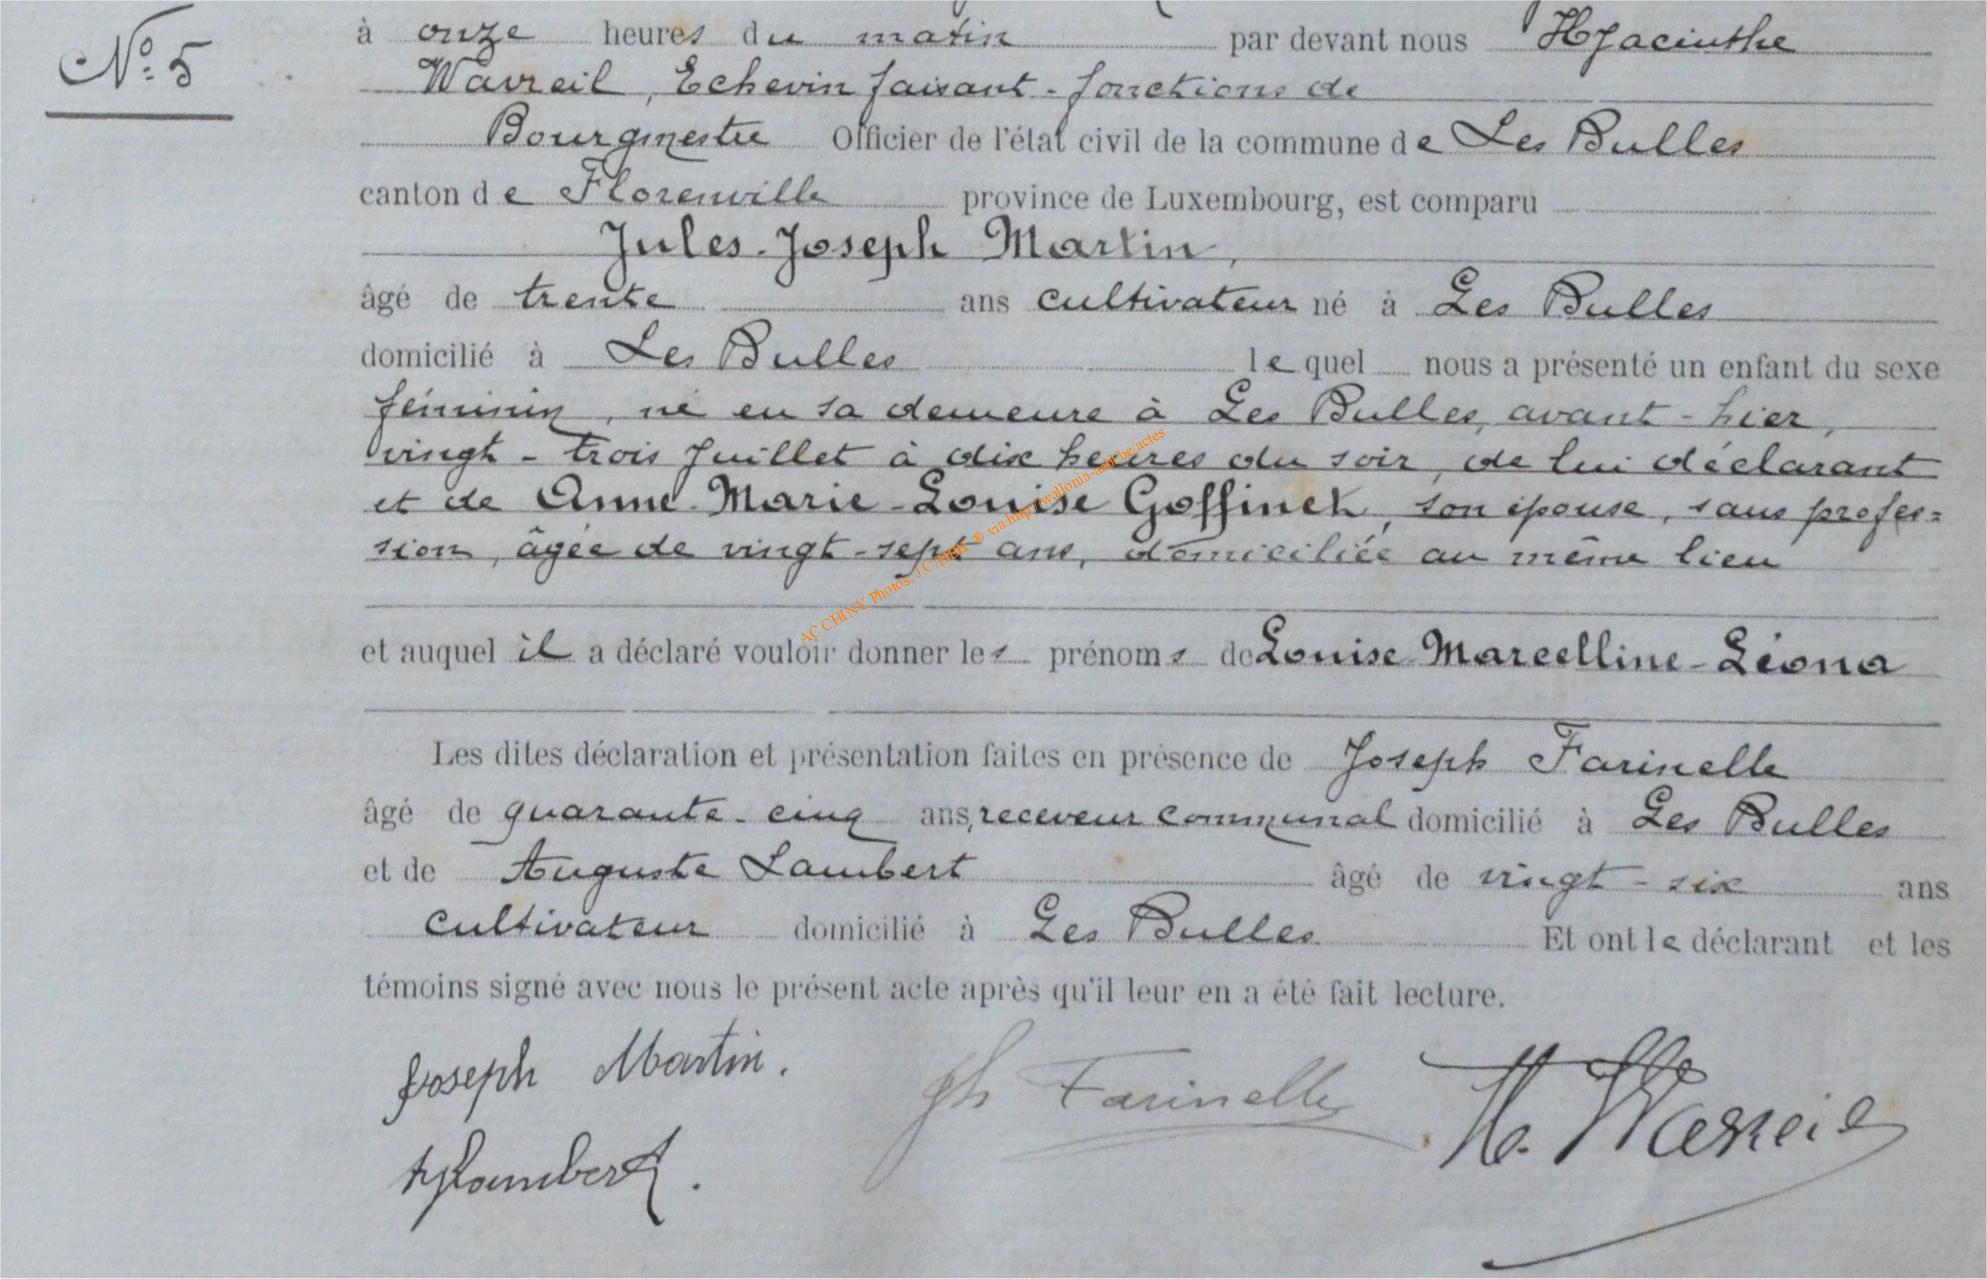 N° 5
à onze heures du matin par devant nous Hyacinthe
Wavreil, Echevin faisant-fonctions de
Bourgmestre Officier de l'état civil de la commune de Les Bulles
canton de Florenville province de Luxembourg, est comparu
Jules-Joseph Martin,
âgé de trente ans cultivateur né à Les Bulles
domicilié à Les Bulles lequel nous a présenté un enfant du sexe
féminin, né en sa demeure à Les Bulles, avant-hier,
vingt-trois Juillet à dix heures du soir, de lui déclarant
et de Anne-Marie-Louise Goffinet, son épouse, sans profes=
sion, âgée de vingt-sept ans, domiciliée au même lieu
AC CHINY Photos, J.C HBH ® via http://wallonia-asbl.be/actes
et auquel il a déclaré vouloir donner les prénoms de Louise-Marcelline-Léona
Les dites déclaration et présentation faites en présence de Joseph Farinelle
âgé de quarante-cinq ans, receveur communal domicilié à Les Bulles
et de Auguste Lambert âgé de vingt-six ans
cultivateur domicilié à Les Bulles Et ont le déclarant et les
témoins signé avec nous le présent acte après qu'il leur en a été fait lecture.
Joseph Martin. Jh Farinelle H. Wavreil
A Lambert.